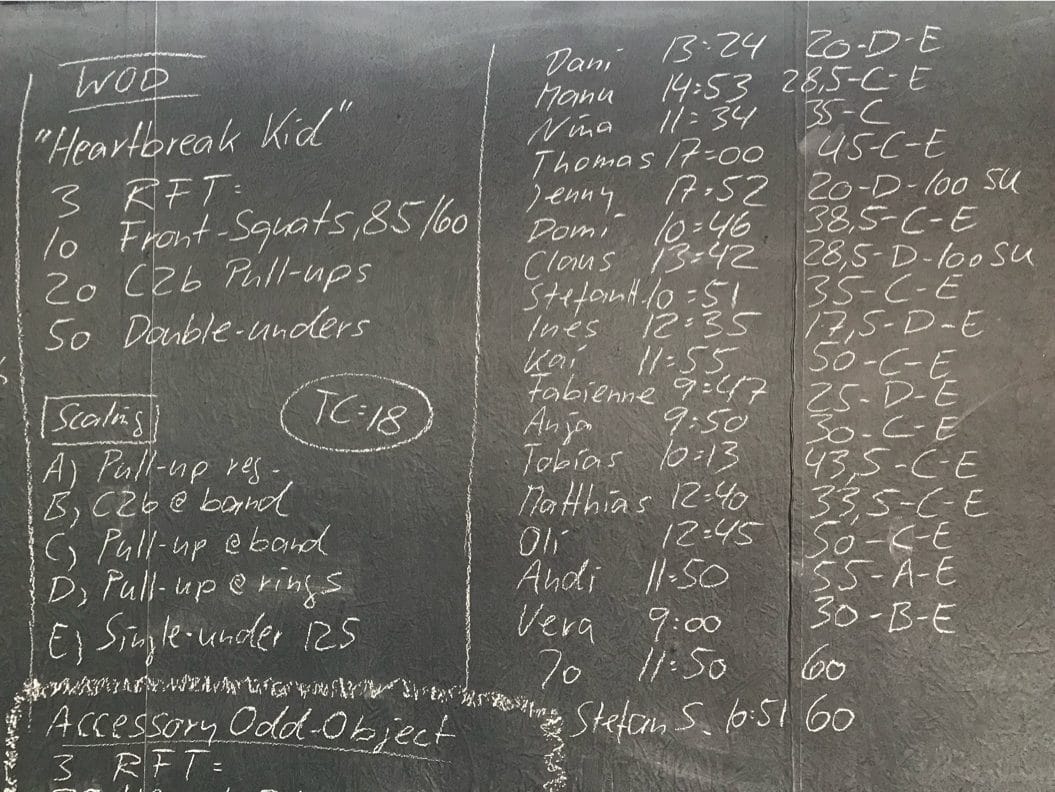 WOD
"Heartbreak Kid"
3 RFT:
10 Front-Squats, 85/60
20 C2b Pull-ups
50 Double-unders
Scaling
TC:18
A) Pull-up reg.
B) C2b @ band
C) Pull-up @ band
D) Pull-up @ rings
E) Single-under 125
Accessory Odd-Object
3 RFT:
Dani 13:24 20-D-E
Manu 14:53 28,5-C-E
Nina 11:34 35-C
Thomas 17:00 45-C-E
Jenny 17:52 20-D-100 SU
Domi 10:46 38,5-C-E
Claus 13:42 28,5-D-100 SU
Stefan H. 10:51 35-C-E
Ines 12:35 17,5-D-E
Kai 11:55 50-C-E
Fabienne 9:47 25-D-E
Anja 9:50 30-C-E
Tobias 10:13 43,5-C-E
Matthias 12:40 33,5-C-E
Oli 12:45 50-C-E
Andi 11:50 55-A-E
Vera 9:00 30-B-E
Jo 11:50 60
Stefan S. 10:51 60